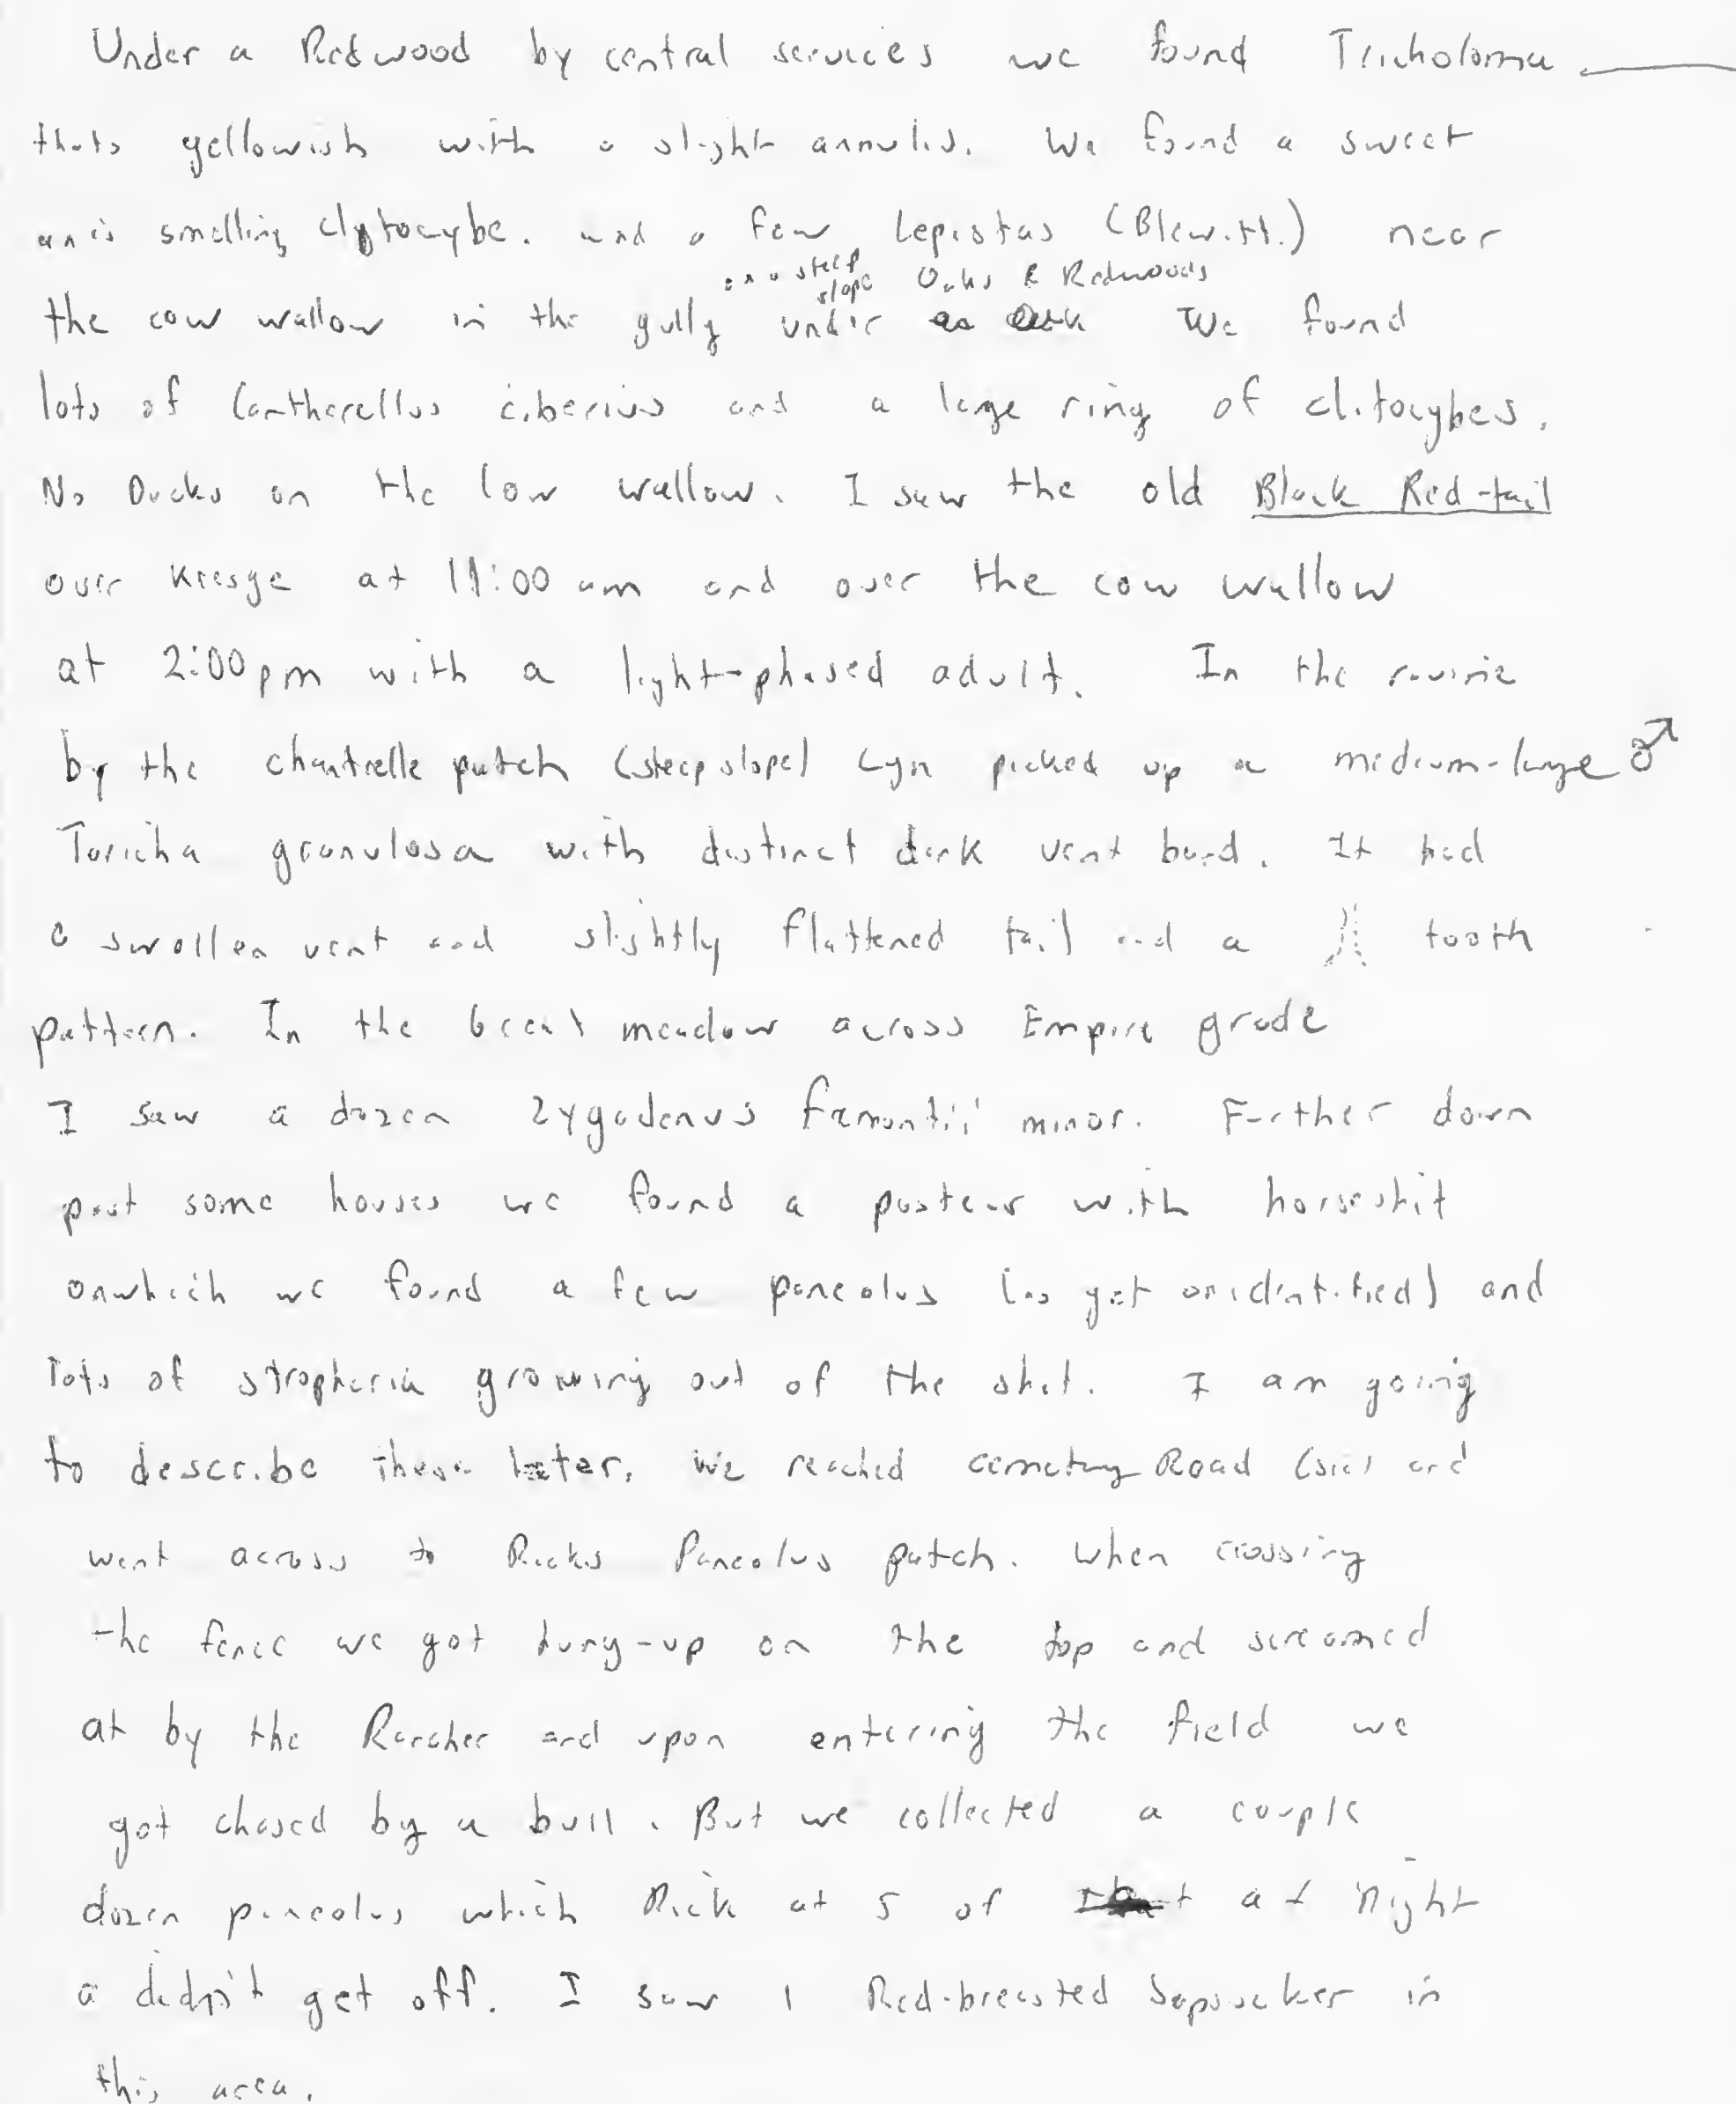 Under a Redwood by central services we found Tricholoma ____
thats yellowish with a slight annulus. We found a sweet
anis smelling clytocybe. and a few Lepistas (Blewitt.) near
on a steep slope Oaks & Redwoods
the cow wallow in the gully under We found
lots of Cantharellus ciberius and a large ring of clitocybes.
No Ducks on the low wallow. I saw the old Black Red-tail
over Kresge at 11:00 am and over the cow wallow
at 2:00pm with a light-phased adult. In the ravine
by the chantrelle patch (steep slope) Lyn picked up a medium-large ♂
Taricha granulosa with distinct dark vent band. It had
a swollen vent and slightly flattened tail and a tooth
pattern. In the Great meadow across Empire grade
I saw a dozen Zygadenus fremontii minor. Further down
past some houses we found a pasteur with horseshit
onwhich we found a few paneolus (as yet unidentified) and
lots of stropharia growing out of the shit. I am going
to describe these later. We reached cemetary Road (sic) and
went across to Ricks Paneolus patch. When crossing
the fence we got hung-up on the top and screamed
at by the Rancher and upon entering the field we
got chased by a bull. But we collected a couple
dozen paneolus which Rick at 5 of at night
a didn't get off. I saw 1 Red-breasted Sapsucker in
this area.